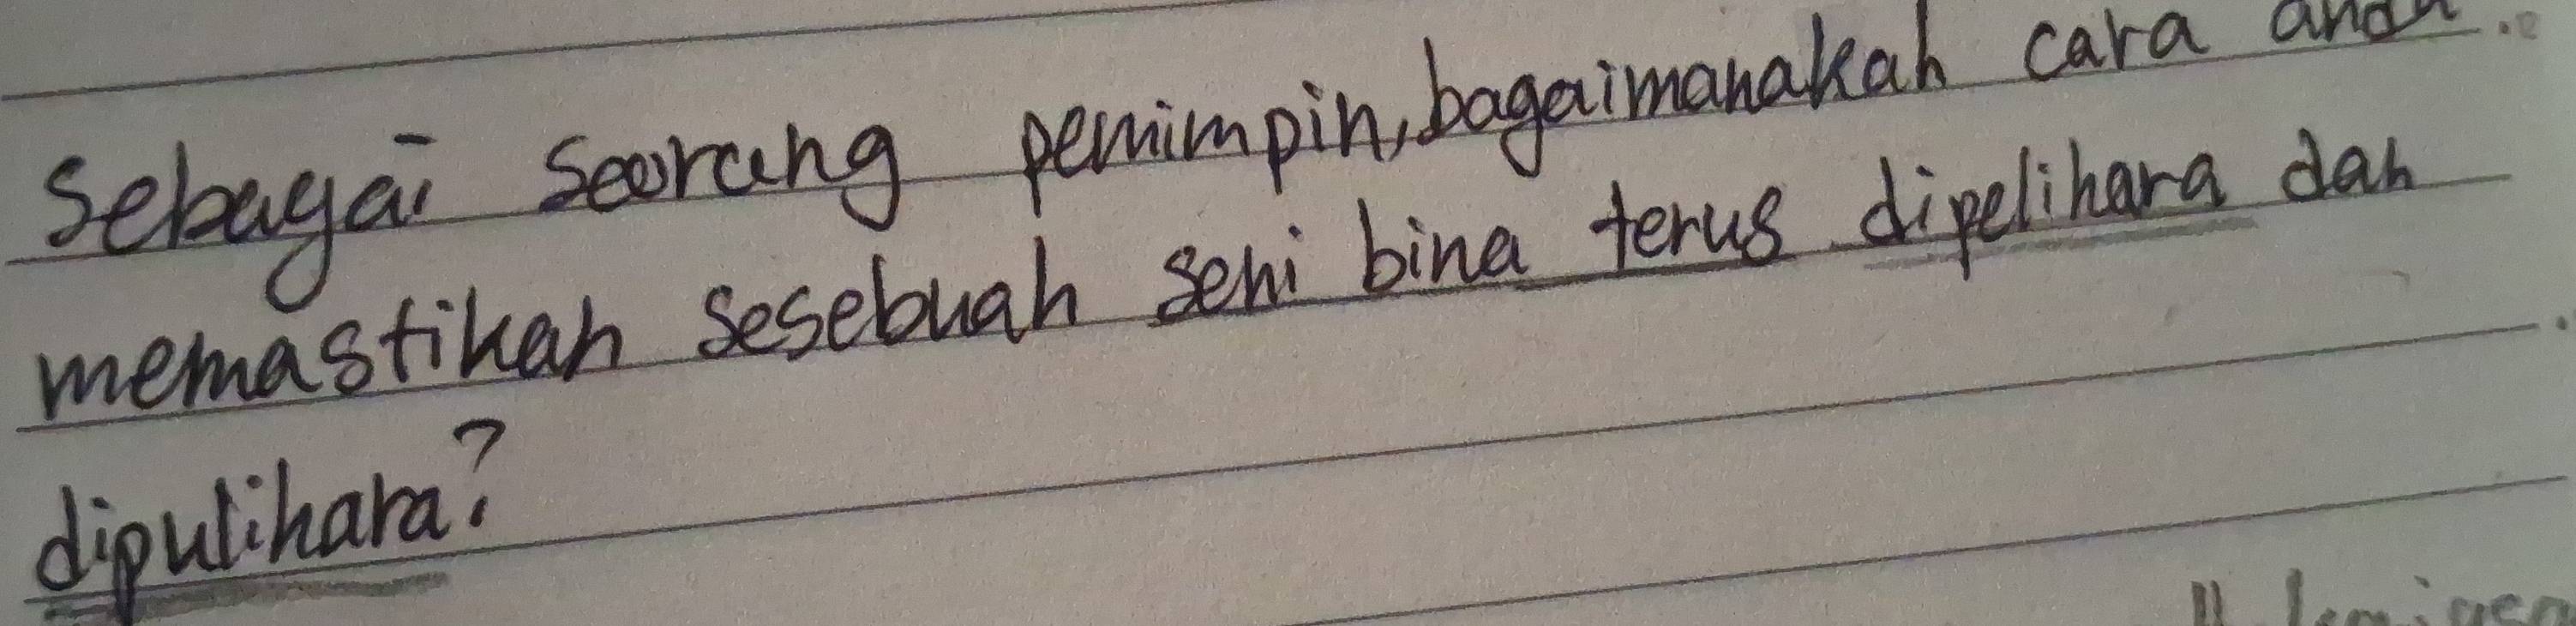 Sebagai seorang pemimpin, bagaimanakah cara anda
memastikan sesebuah seni bina terus dipelihara dan
dipulihara?